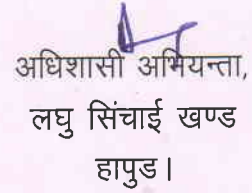 अधिशासी अभियन्ता,
लघु सिंचाई खण्ड
हापुड।